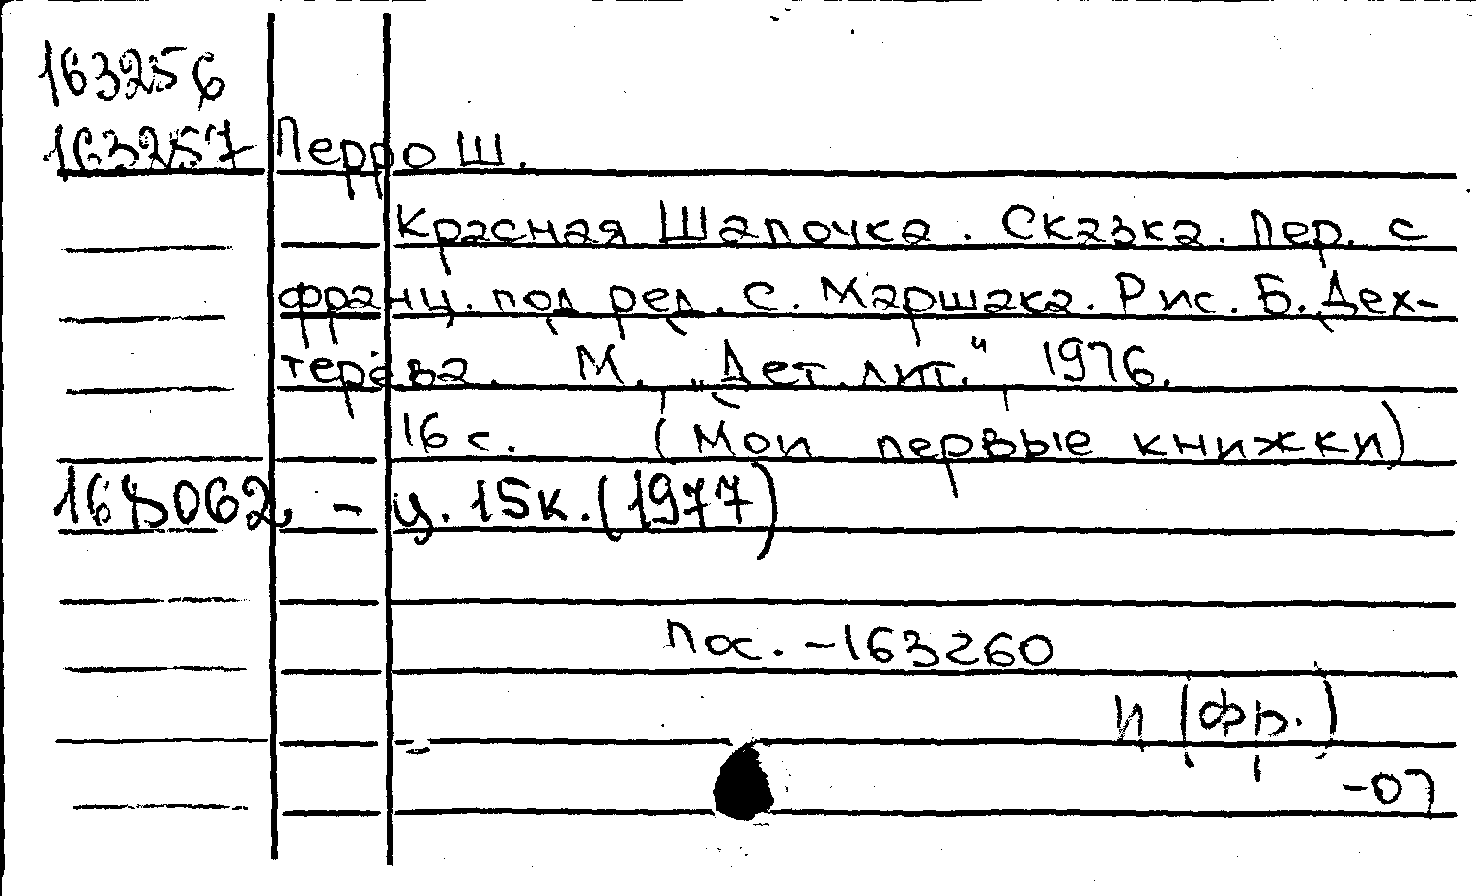 163256
163257 Перро Ш.
Красная Шапочка. Сказка. Пер. с
франц. под ред. С. Маршака. Рис. Б. Дех-
терева. М. „Дет. лит." 1976.
16 с. (Мои первые книжки)
- ц. 15к. (1977)
Пос. - 163260
И (фр.)
-07